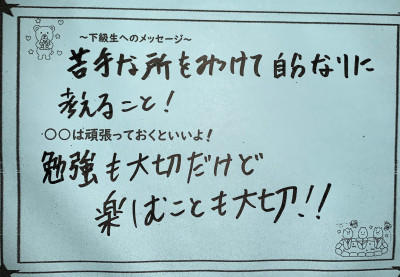 ～下級生へのメッセージ～
苦手な所をみつけて自分なりに
考えること！
○○は頑張っておくといいよ！
勉強も大切だけど
楽しむことも大切!!